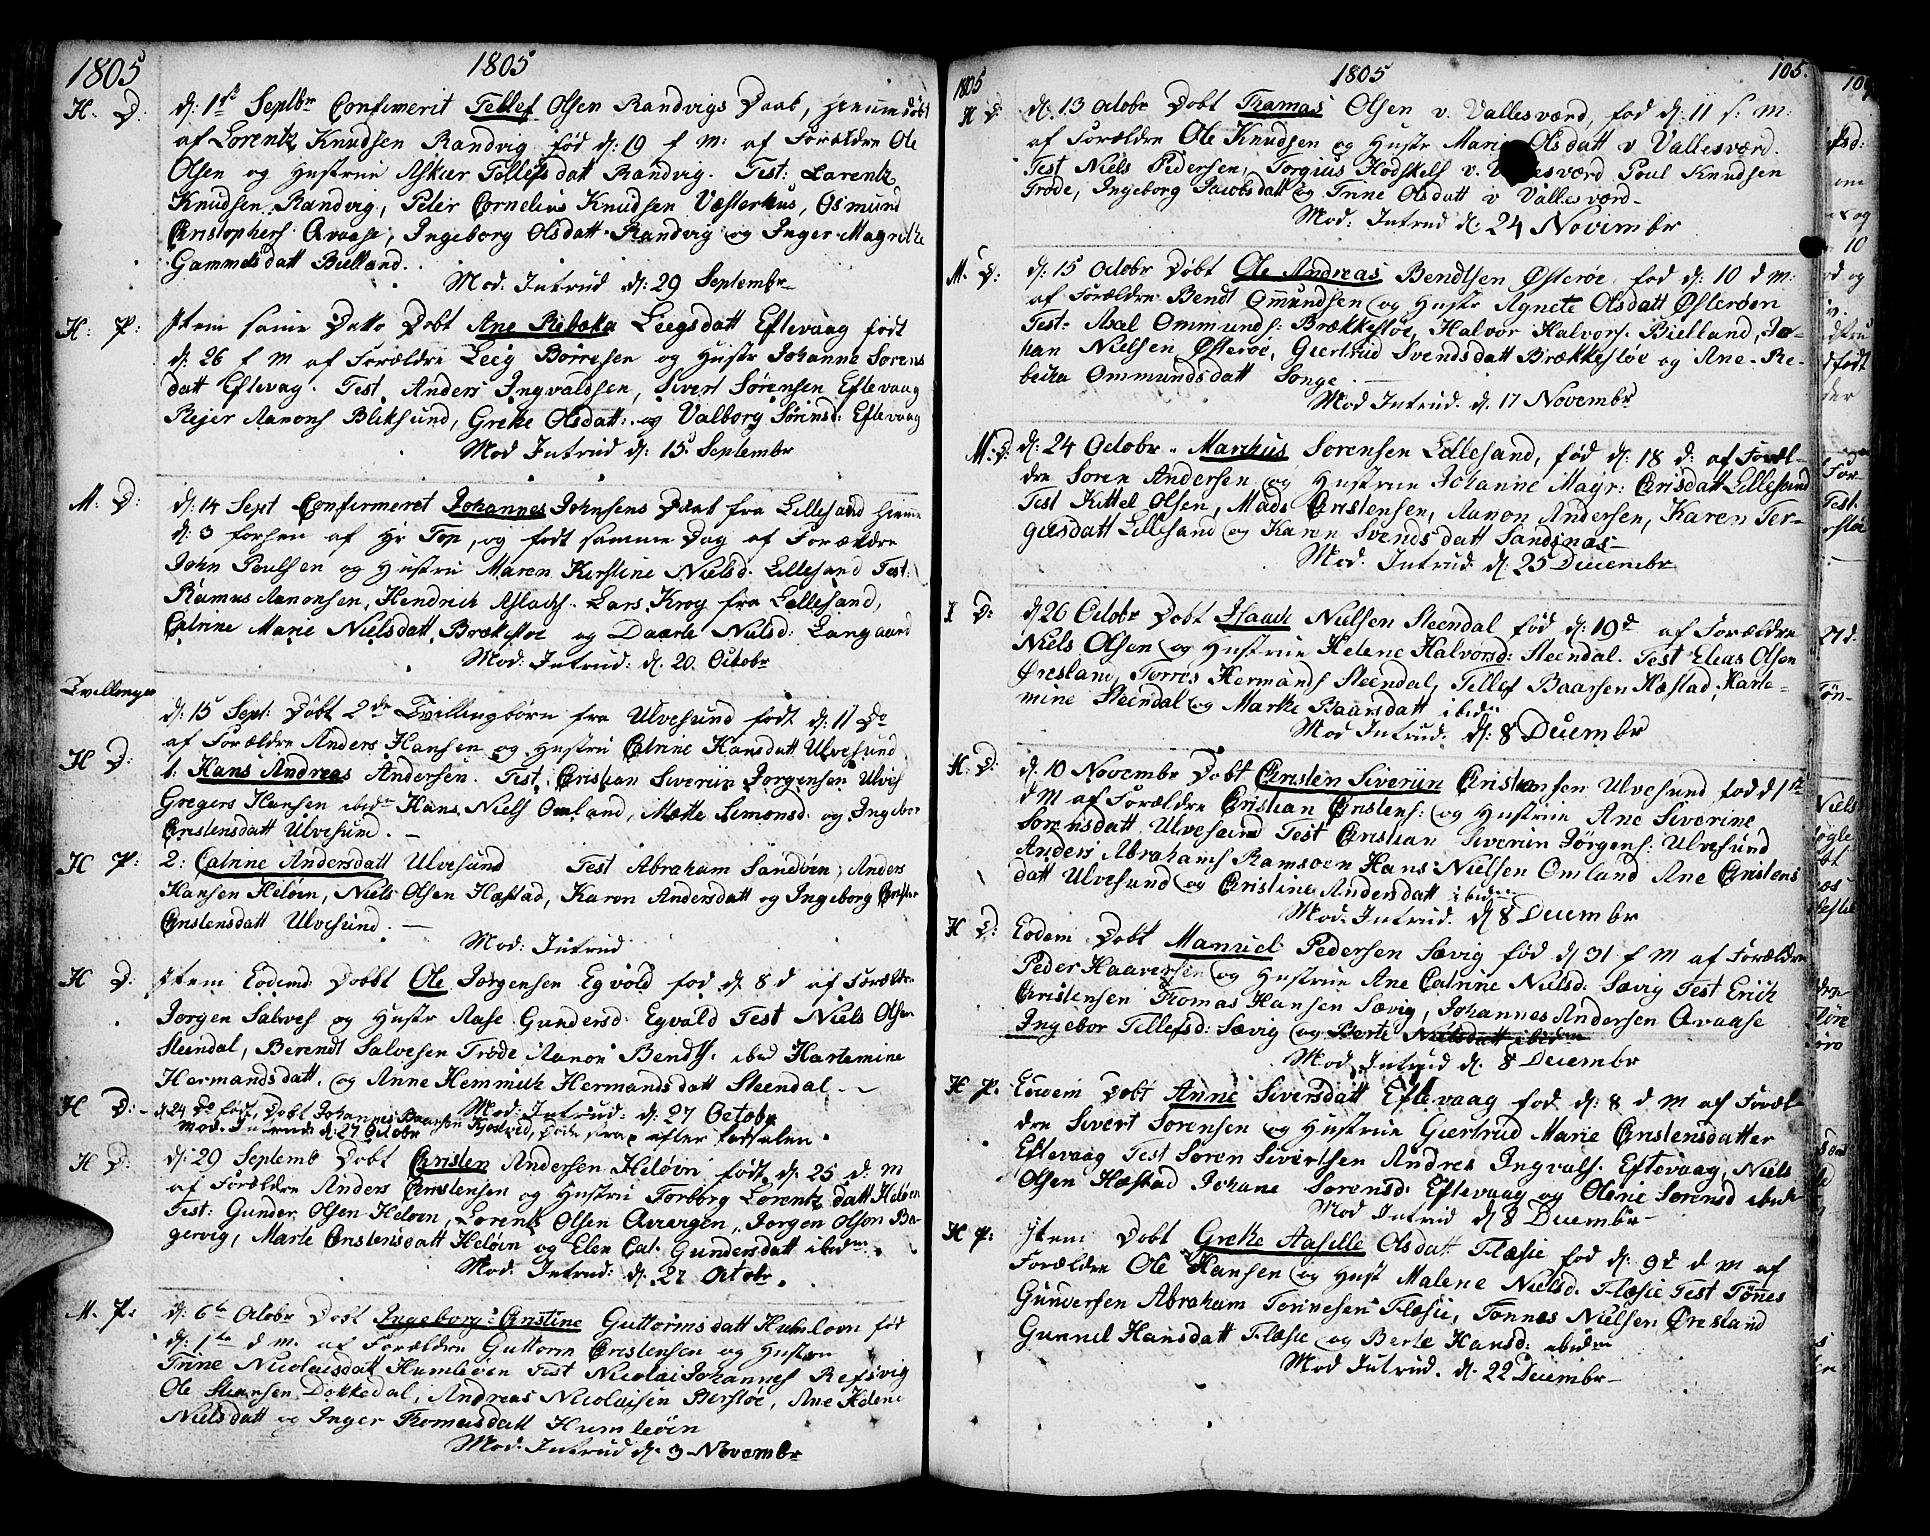 1805
1805
H. D. d: 1ste Septbr Confimerit Tellef Olsen Randvigs Daab, hiemmedøbt
af Lorentz Knudsen Randvig fød d: 19 f m: af Forældre Ole
Olsen og Hustrue Asker Tellefsdatt Randvig. Test: Larentz
Knudsen Randvig, Peter Cornelius Knudsen Væsterhus, Osmund
Cristophers Avaase, Ingeborg Olsdatt Randvig og Inger Magrethe
Gammelsdatt Bielland.
Mod. Intrud d: 29 Septembr
H: P: Item samme Datto Døbt Ane Rebeka Leegsdatt Eftevaag født
d: 26 f M af Forældre Leeg Börresen og Hustr Johanne Sørens
datt Eftevag. Test. Anders Ingvaldsen, Sivert Sørensen Eftevaag
Rejer Aanons Bliksund, Grethe Olsdatt: og Valborg Sørinsd: Eftevaag
Mod Intrud d: 15 Septembr
M: D: d: 14 Sept Confirmeret Johannes Johnsens Daab fra Lillesand hiemme
d: 3 forhen af Hr Top, og født samme Dag af Forældre
John Poulsen og Hustru Maren Kirstine Nielsd. Lillesand Test:
Rasmus Aanonsen, Hendrich Aslachs. Lars Krog fra Lillesand,
Catrine Marie Nielsdatt Brækestøe og Daarte Nielsd: Langaard
Mod: Intrud: d. 20. Octobr
Tvillinger
d: 15 Sept: Døbt 2de Tvillingbørn fra Ulvesund født d: 11 Do
af Forældre Anders Hansen og Hustru Catrine Hansdatt Ulvesund
H D: 1: Hans Andreas Andersen. Test: Cristian Siveriin Jørgensen Ulves
Gregers Hansen ibidn Hans Niels Omland, Mætte Simonsd: og Ingebor
Cristensdatt Ulvesund. —
H P: 2: Catrine Andersdatt Ulvesund Test Abraham Sandøen, Anders
Hansen Heløin, Niels Olsen Hæstad, Karen Andersdatt og Ingeborg
Cristensdatt Ulvesund. —
Mod: Intrud
H D: Item Eodemd Døbbt Ole Jørgensen Egvold fød d: 8 d af Forældre
Jorgen Salves og Hustr Aase Gundersd: Egvald Test Niels Olsen
Steendal, Berendt Salvesen Trøde, Aanon Bendts. ibid Hartemine
Hermandsdatt, og Anne Hemmich Hermandsdatt Steendal
Mod: Intrud: d: 27 Octobr
H D: d 24 Do født, Døbt Johannes Baarsen Fjostved, Døde strax efter fødselen.
Mod. Intrud d: 27 Octobr
H D: d: 29 Septemb Døbt Cristen Andersen Heløin født d: 25 d. M
af Forældre Anders Cristensen og Hustru Torborg Lorentz datt Heløin
Test: Gunder Olsen Heløin, Lorentz Olsen, Jørgen Olsen Ba-
gervig, Marte Cristensdatt Heløin og Elen Cat. Gundersdatt ibidm.
Mod: Intrud: d: 27 Octobr.
M: P: d: 6te Octobr Døbt Ingeborg Cristine Guttormsdatt Humløen fød
d: 1ste d m. af Forældre Guttorm Cristensen og Hustru
Trine Nicolaisdatt Humleøen Test Nicolai Johannes Refsvig
Ole Steensen Dokkedal, Andreas Nicolaisen Berstøe, Ane Helene
Nielsdatt og Inger Thomasdatt Humleöin
Mod: Intrud d. 3 Novembr
1805
1805
105.
H D: d: 13 Octobr Døbt Thamas Olsen v. Vallesværd, fød d: 11 s: M:
af Forældre Ole Knudsen og Hustr Marie Olsdatt v Vallesværd.
Test Niels Pedersen, Torgius Hodskels v. Vallesværd Poul Knudsen
Trøde, Ingeborg Jacobsdatt og Trine Olsdatt v Vallesværd—
Mod: Intrud d: 24 Novembr
M. D: d: 15 Octobr Døbt Ole Andreas Bendtsen Østerøe fød d: 10 d m:
af Forældre Bendt Ommundsen og Hustr Agnete Olsdatt Østerøen
Test: Axel Ommunds: Brækkestøe, Halvor Halvors: Bielland, Jo-
han Nielsen Østerøe, Giertrud Svendsdatt Brækkestøe og Ane Re-
becka Ommundsdatt Songe. —
Mod Intrud. d. 17 Novembr
M: D: d: 24 Octobr. Marchus Sørensen Lillesand, fød d: 18 d: af Foræl
dre Soren Andersen og Hustrue Johanne Magr: Crisdatt Lillesand
Test Kittel Olsen, Mads Cristensen, Aanon Andersen, Karen Ter-
giersdatt Lillesand og Karen Svendsdatt Sandsnæs—
Mod. Intrud. d: 25 Decembr
I D: d 20 Octobr Døbt Isaach Nielsen Steendal fød d: 19d af Forældre
Niels Olsen og Hustrue Helene Halvorsd: Steendal. Test Eleas Olsen
Øresland, Torres Hermands Steendal, Tellef Baarsen Hæstad, Harte-
mine Steendal og Marthe Baarsdatt ibidm
Mod Intrud. d: 8 Decembr
H: D: d. 10 Novembr Døbt Cristen Siveriin Cristensen Ulvesund fød d 1ste
d M af Forældre Cristian Cristens: og Hustrue Ane Siverine
Sorensdatt Ulvesund Test Cristian Siveriin Jörgens: Ulvesund
Anders Abrahams Ramsøen Hans Nielsen Omland Ane Cristens
datt Ulvesund og Cristine Andersdatt ibidm
Mod. Intrud. d 8 Decembr
H D: Eodem Døbt Manuel Pedersen Sævig fød d: 31 f M af Forældre
Peder Haaversen og Hustrue Ane Catrine Nielsd. Sævig Test Erich
Cristensen Thomas Hansen Sævig, Johannes Andersen Avaase
Ingebor Tellefsd: Sævig og Berte Nielsdatt ibidem
Mod Intrud d. 8 Decembr
H P: Eodem Døbt Anne Siversdatt Eftevaag fød d: 8 d M af Foræl
dre Sivert Sorensen og Hustrue Giertrud Marie Cristensdatter
Eftevaag Test Soren Sivertsen Andrea Ingvals. Eftevaag, Niels
Olsen Hæstad Johane Sørensd: Eftevaag og Olene Sørensd ibidm
Mod Intrud d 8 Decembr
H P: Item Døbt Grethe Aaselle Olsdatt Flæsie fød d: 9d d M af
Forældre Ole Hansen og Hust Malene Nielsd. Flæsie Test Tönes
Gundersen Abraham Tønnesen Flæsie, Tønnes Nielsen Øresland
Gunnil Hansdatt Flæsie og Berte Hansd: ibidm
Mod Intrud. d. 22 Decembr—